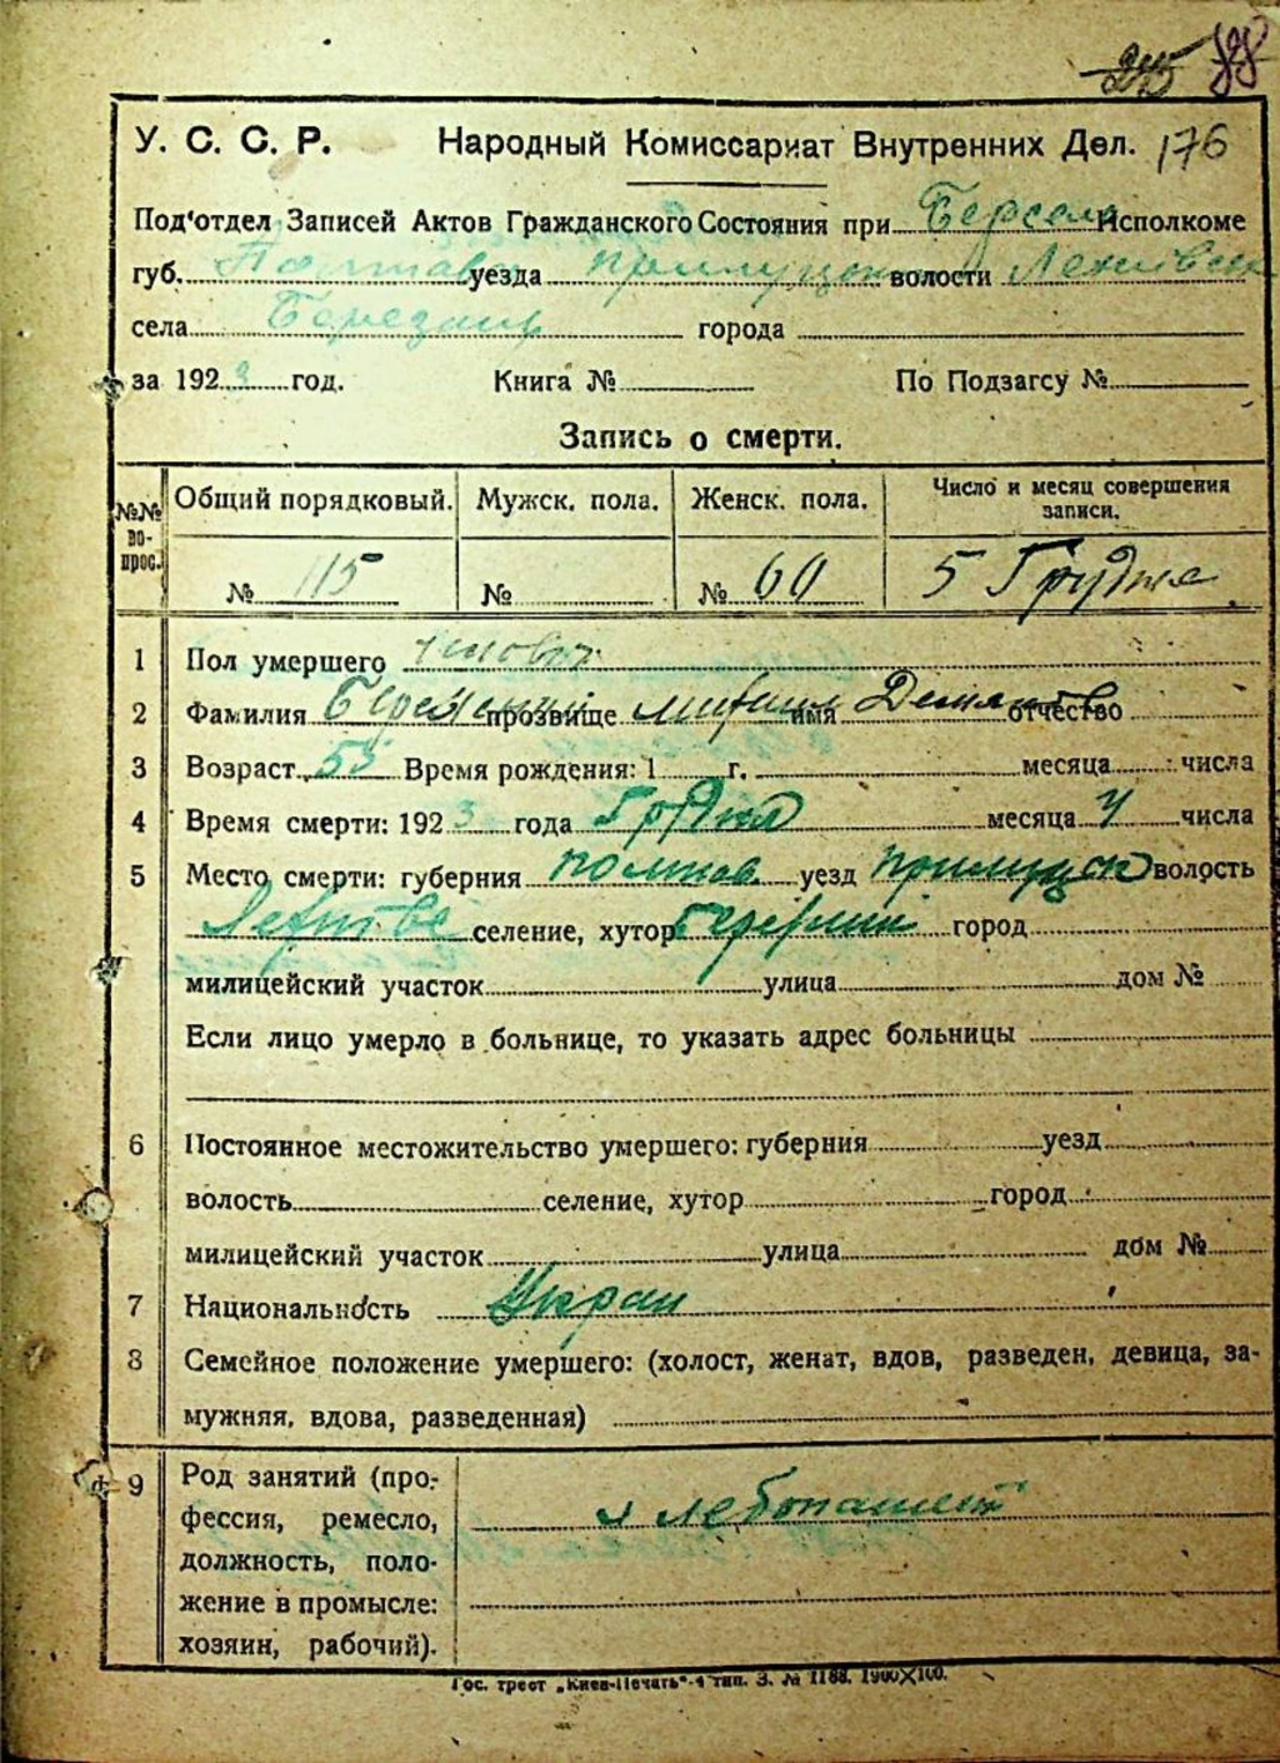 У. С. С. Р. Народный Комиссариат Внутренних Дел. 176
Под'отдел Записей Актов Гражданского Состояния при Исполкоме
губ. Полтавс уезда Прилуцьк волости
села города
за 192 год. Книга № По Подзагсу №
Запись о смерти.
№№ во- прос. Общий порядковый. Мужск. пола. Женск. пола. Число и месяц совершения записи.
№ 115 № № 60 5 Грудня
1 Пол умершего
2 Фамилия прозвище имя отчество
3 Возраст 55 Время рождения: 1 г. месяца числа
4 Время смерти: 1923 года Грудня месяца 4 числа
5 Место смерти: губерния Полтав. уезд Прилуцьк волость
селение, хутор город
милицейский участок улица дом №
Если лицо умерло в больнице, то указать адрес больницы
6 Постоянное местожительство умершего: губерния уезд
волость селение, хутор город
милицейский участок улица дом №
7 Национальность Украи
8 Семейное положение умершего: (холост, женат, вдов, разведен, девица, за-
мужняя, вдова, разведенная)
9 Род занятий (про-
фессия, ремесло, хлебопашет
должность, поло-
жение в промысле:
хозяин, рабочий).
Гос. трест „Киев-Печать“-4 тип. З. № 1188. 1900Х100.